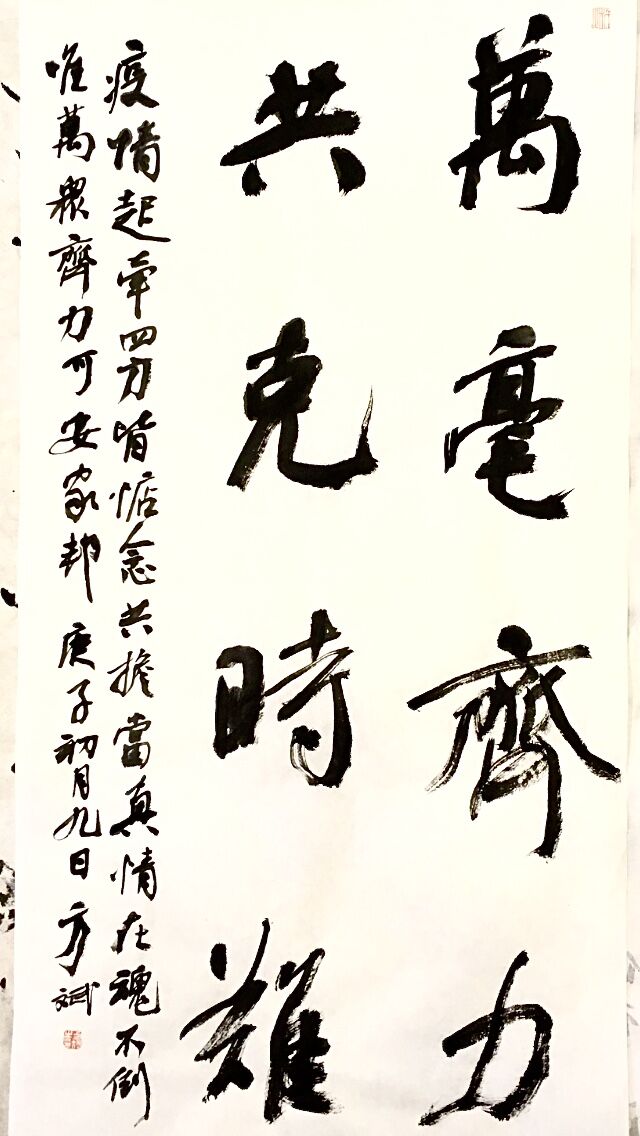 萬毫齊力
共克時難
疫情起牽四方皆惦念共擔當真情在魂不倒
唯萬眾齊力可安家邦庚子初月九日方斌